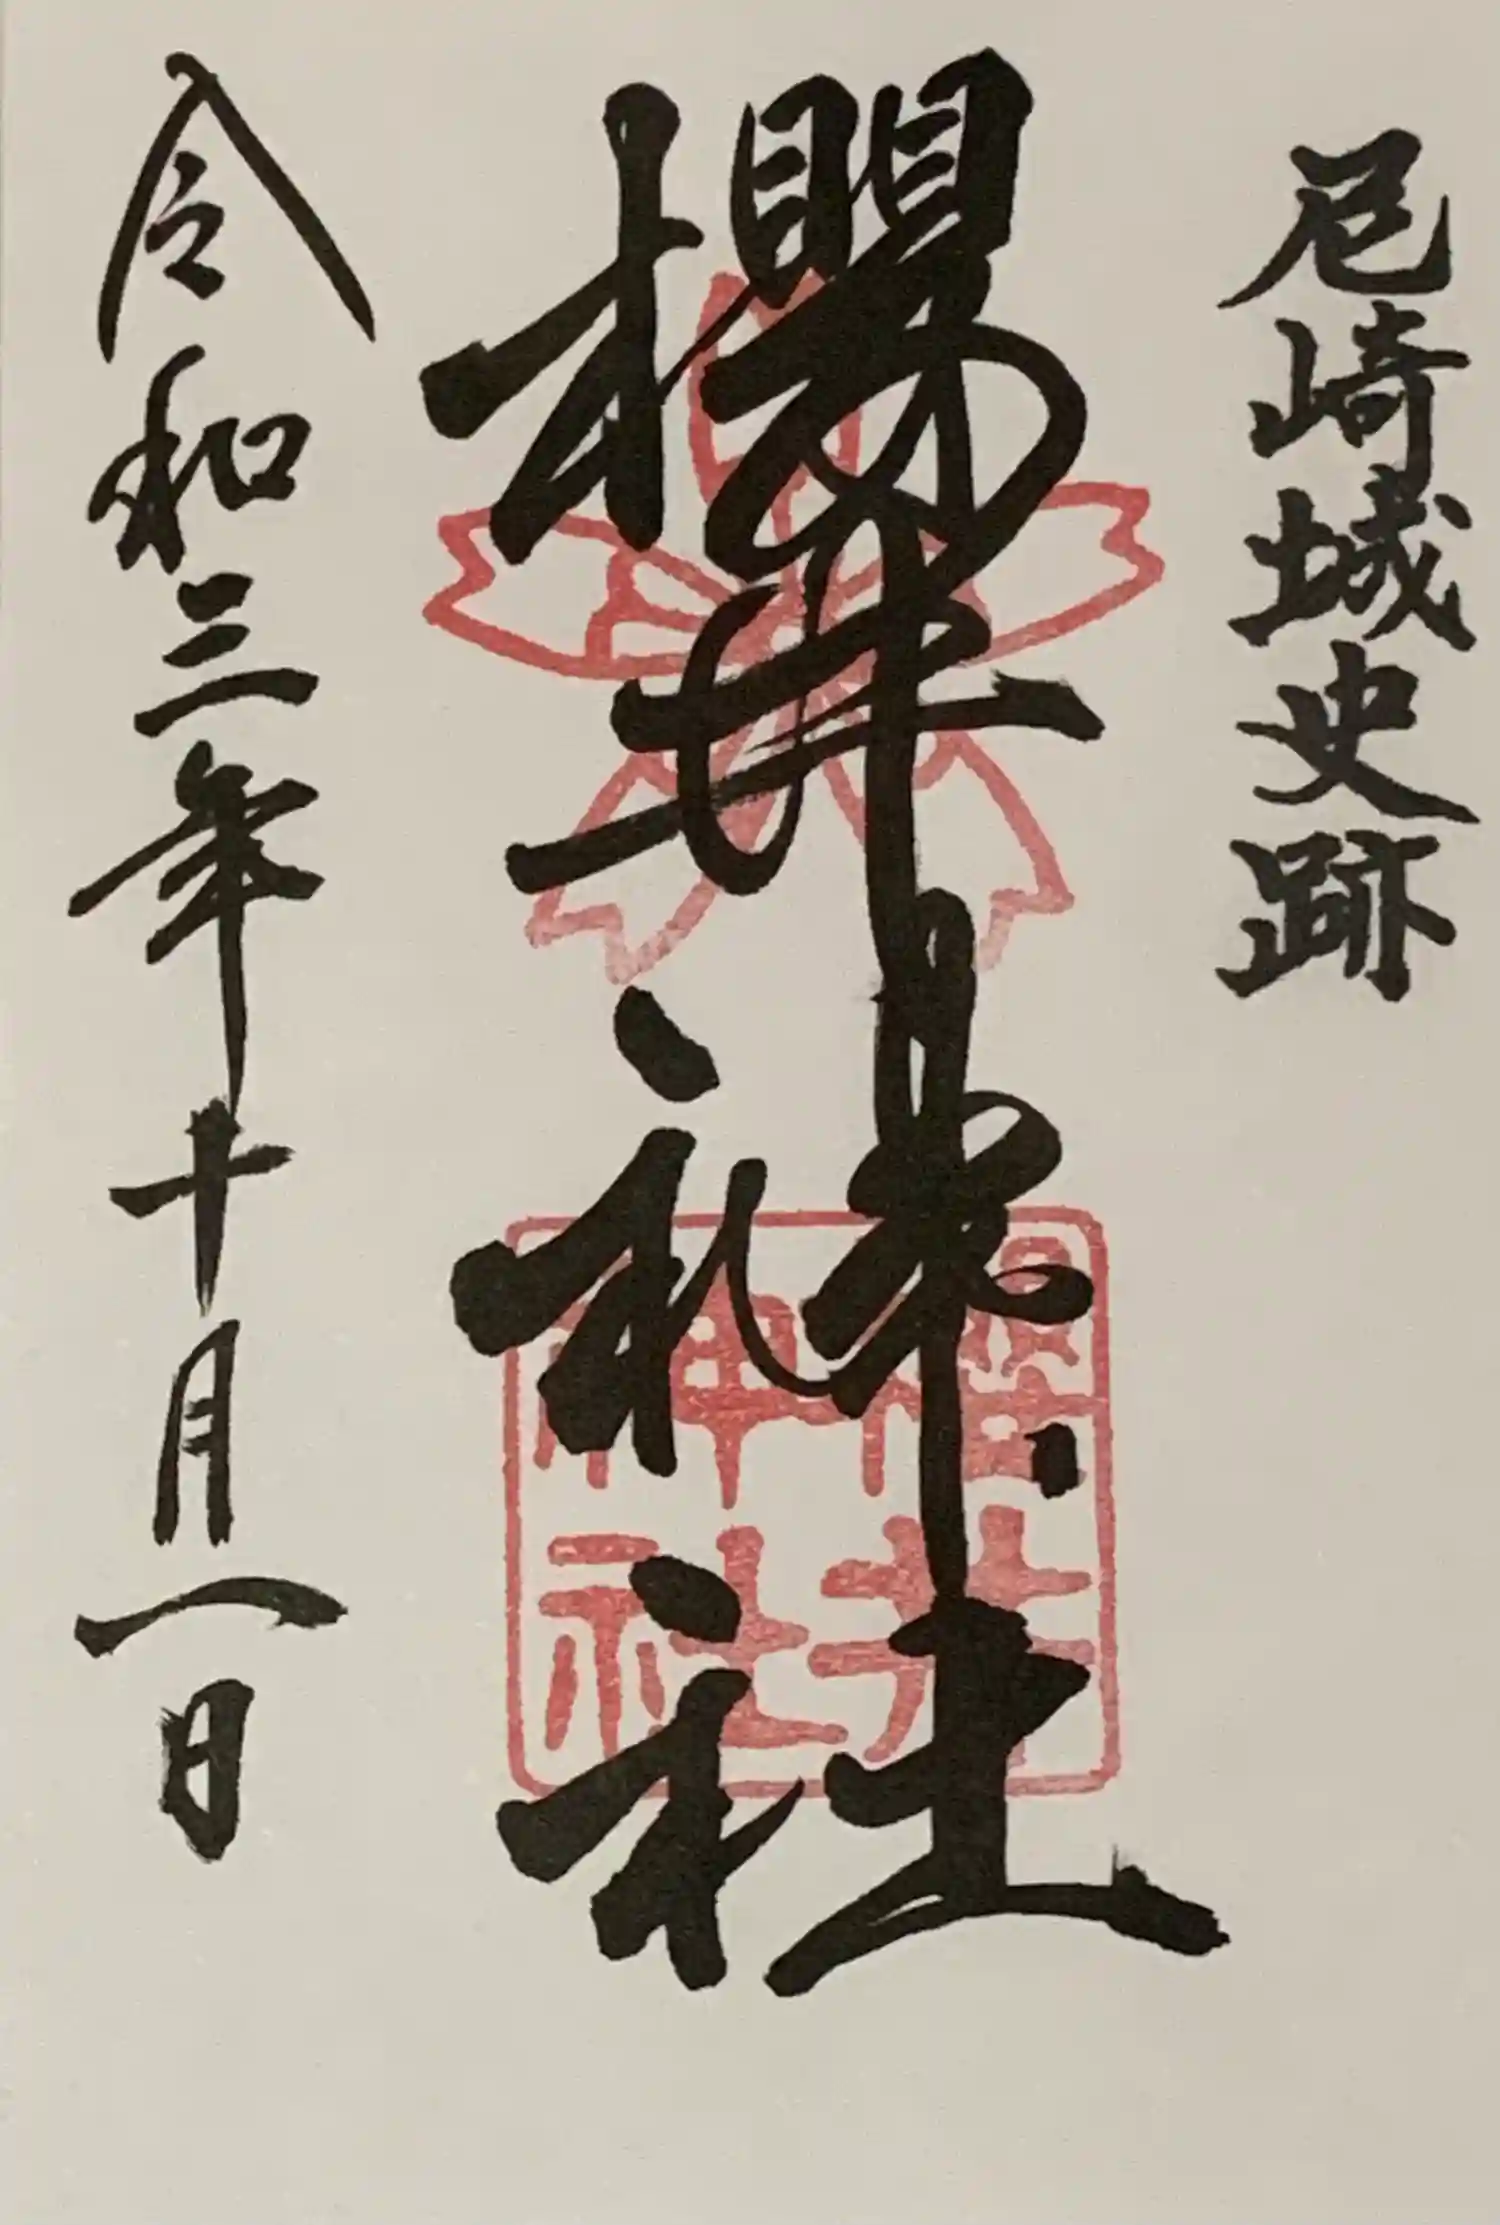 尼崎城史跡
櫻井神社
令和三年十月一日
櫻井
神社